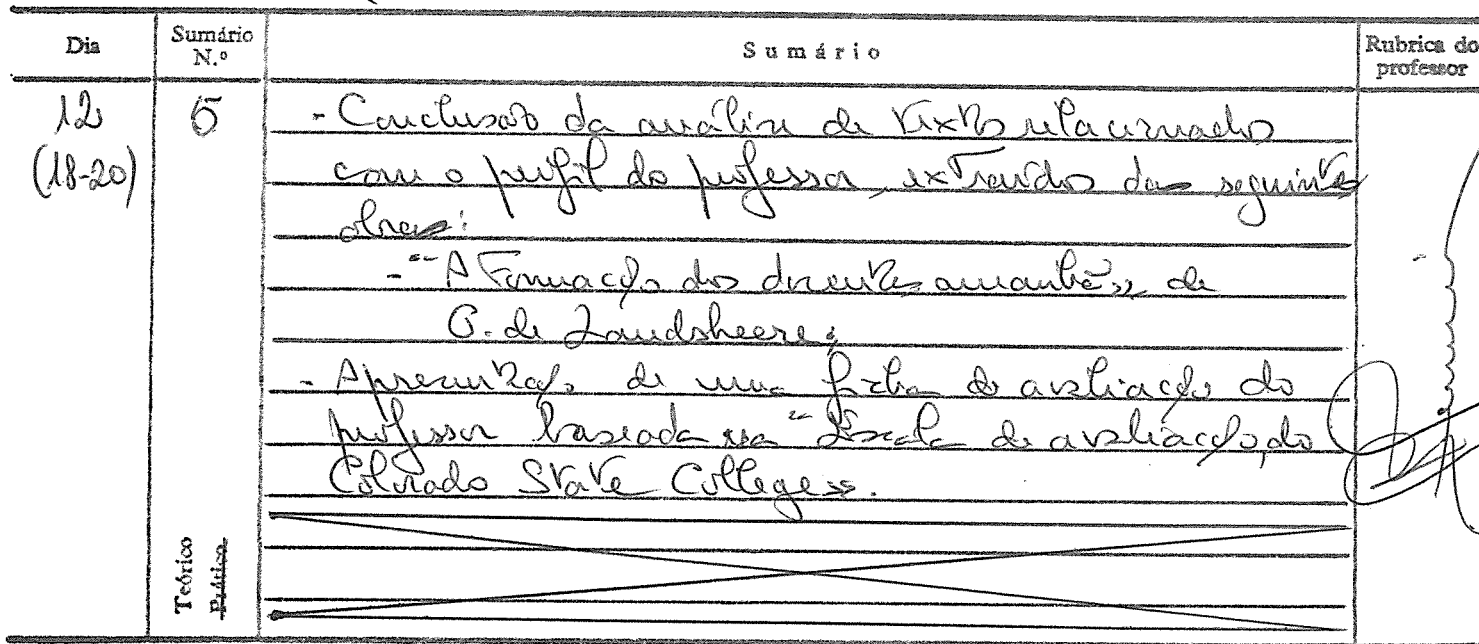 Dia
Sumário N.º
Sumário
Rubrica do professor
12
(18-20)
5
- Conclusão da análise de textos relacionados
com o perfil do professor, extraídos das seguintes
obras:
- "A Formação dos docentes amanhã", de
G. de Landsheere;
- Apresentação de uma ficha de avaliação do
professor baseada na "Escala de avaliação, do
Colorado State College".
Teórico
Prático